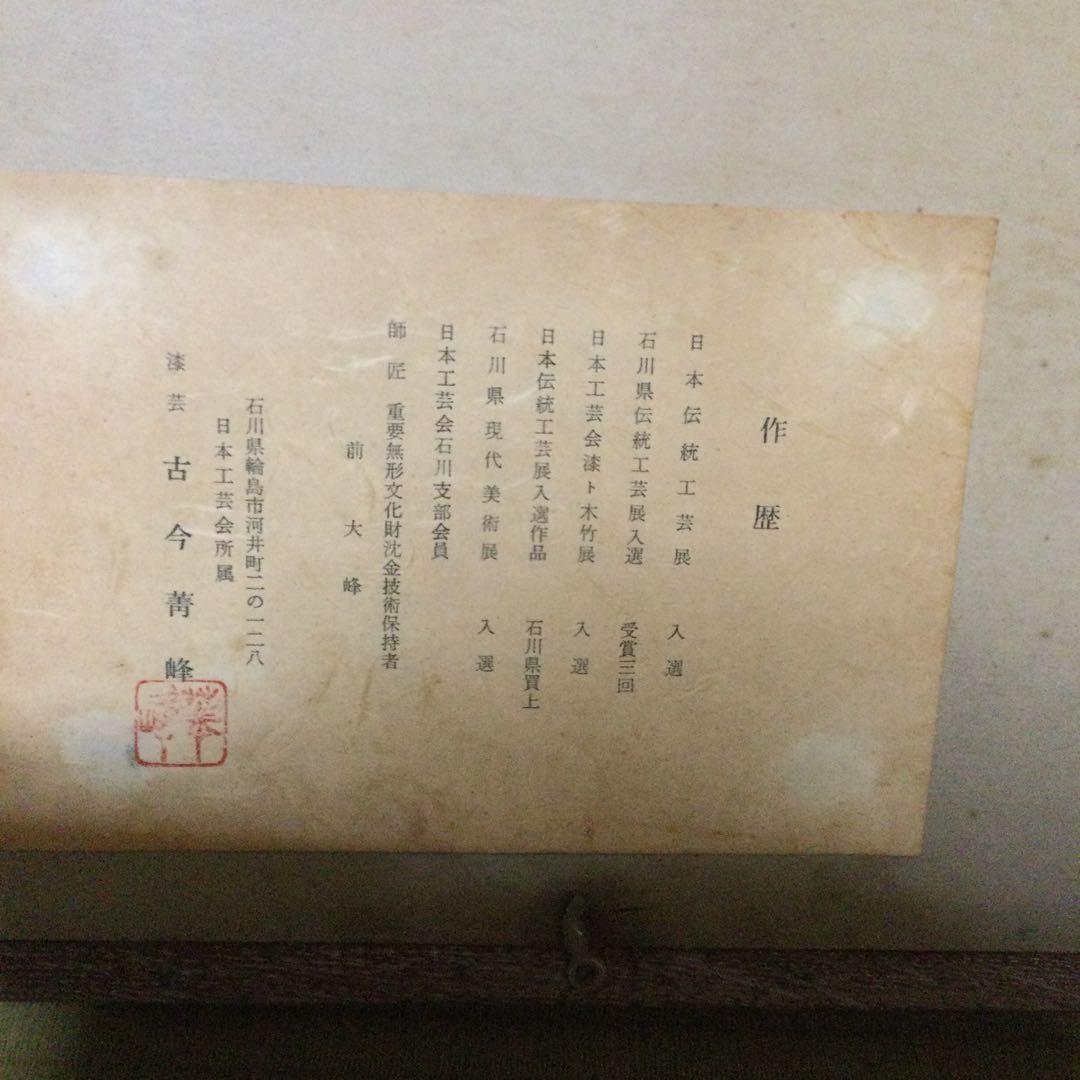 作歴
日本伝統工芸展 入選
石川県伝統工芸展入選 受賞三回
日本工芸会漆ト木竹展 入選
日本伝統工芸展入選作品 石川県買上
石川県現代美術展 入選
日本工芸会石川支部会員
師匠 重要無形文化財沈金技術保持者
前大峰
石川県輪島市河井町二の一二八
日本工芸会所属
漆芸 古今菁峰